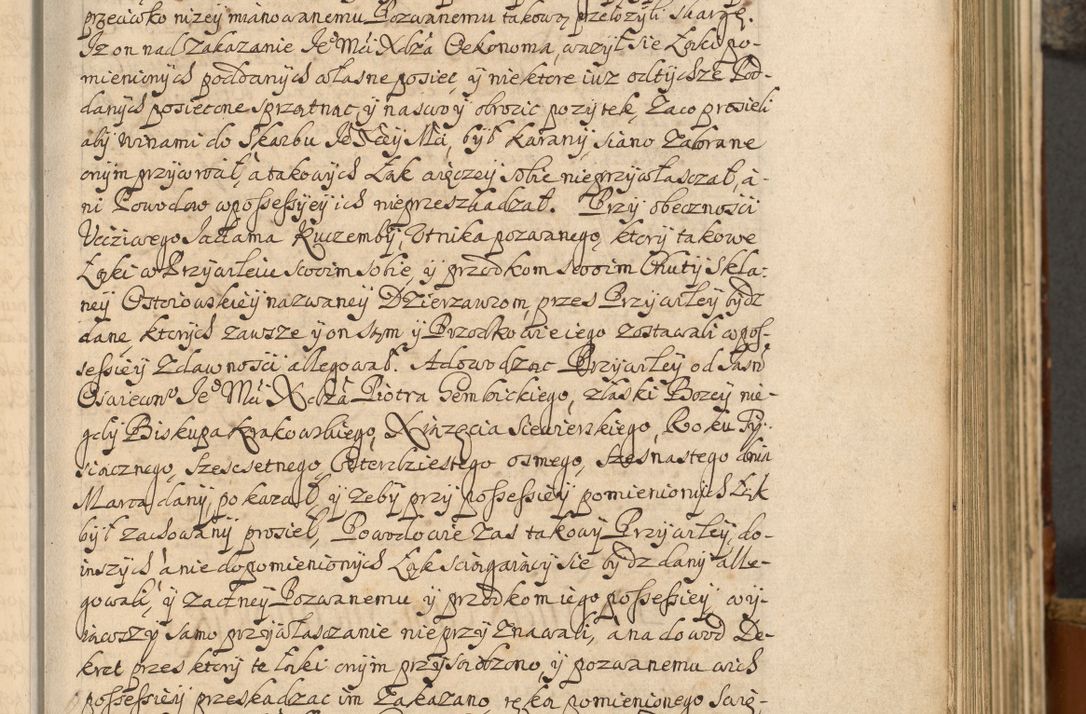 przeciwko nizey mianowanemu Pozwanemu takową przełozyli skargę.
Iz on nad zakazanie Je° Mci Xdza Oekonoma, wazył sie Łąki po-
mienionych poddanych własne posiec, y niektore iuz od tychze Pod-
danych posieczone sprzątnąc, y na swoy obrocic pozytek, za co prosieli
aby winami do Skarbu Je° Xcey Mci, był karany, siano zabrane
onym przywrocił, a takowych Łąk więczey sobie nieprzywłaszczał, a-
ni Powodow w possessyey ich nieprzeszkadzał. Przy obecznosci
Ucziwego Jadama Kuczemby, Utnika pozwanego, ktory takowe
Łąki w Przywileiu swoim sobie, y przodkom swoim Chuty Skla-
ney Osterowskiey nazwaney Dzierzawcom, przes Przywiley bydz
dane, ktorych zawsze y on sam y Przodkowie iego zostawali w pos-
sessiey z dawnosci allegował. A dowodząc Przywiley od Jasn
Oswiecon° Je° Mci Xdza Piotra Gembickiego, z łaski Bozey nie-
gdy Biskupa Krakowskiego, Xiązęcia Siewierskiego, Roku Ty-
siącznego, Szescsetnego, Czterdziestego osmego, Szesnastego dnia
Marca dany, pokazał, y zeby przy possessiey pomienionych Łąk
był zachowany prosieł, Powodowie zas takowy Przywiley, do
inszych a nie do pomienionych Łąk sciągaiący sie bydz dany alle-
gowali, y zadney Pozwanemu y przodkom iego possessiey wy-
iąwszy samo przywłaszczanie nie przyznawali, a na dowod De-
kret przes ktory te Łąki onym przysądzono, y pozwanemu w ich
possessiey przeskadzac im zakazano, ręką pomienionego